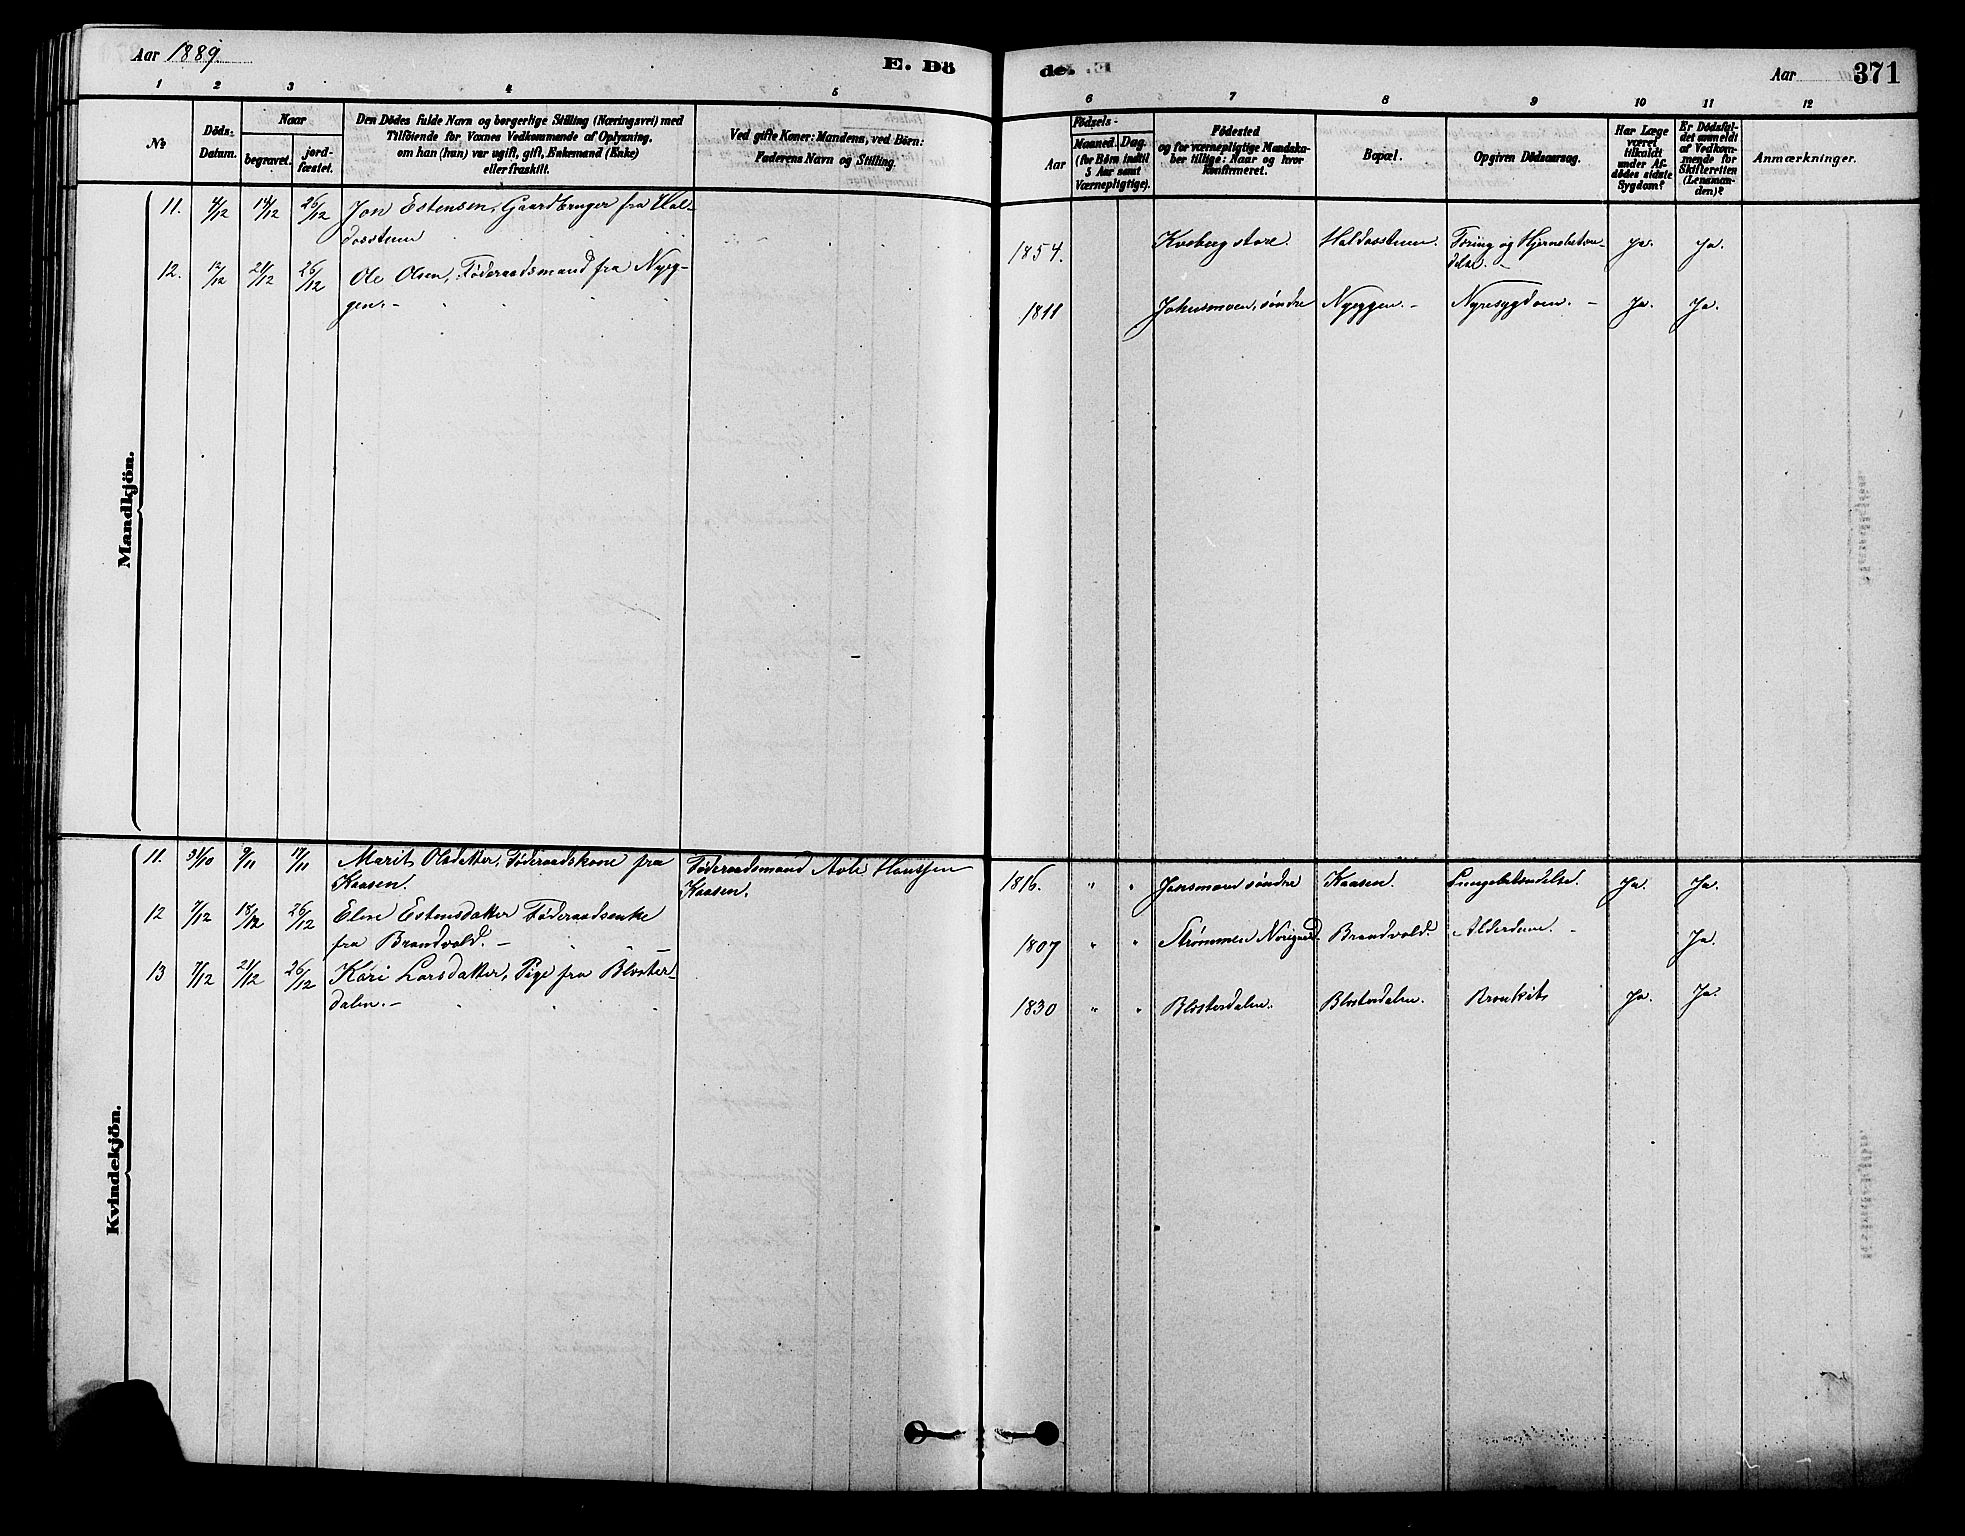 Aar 1889.
E. Dö
de. E
Aar
371
1 2 3 4 5
6 7 8 9 10 11 12
No
Döds-
Datum.
Naar
begravet.
jord-
fæstet.
Den Dödes fulde Navn og borgerlige Stilling (Næringsvei) med
Tilföiende for Voxnes Vedkommende af Oplysning,
om han (hun) var ugift, gift, Enkemand (Enke)
eller fraskilt.
Ved gifte Koner: Mandens, ved Börn:
Faderens Navn og Stilling.
Födsels-
Aar
Maaned.
Dag.
(for Börn indtil
5 Aar samt
Værnepligtige).
Födested
og for værnepligtige Mandska-
ber tillige: Naar og hvor
konfirmeret.
Bopæl.
Opgiven Dödsaarsag.
Har Læge
været
tilkaldt
under Af-
dödes sidste
Sygdom?
Er Dödsfal-
det anmeldt
af Vedkom-
mende for
Skifteretten
(Lensman-
den)?
Anmærkninger.
Mandkjön.
11. 4/12 14/12 26/12 Jon Estensen, Gaardbruger fra Hal-
dosstuen
1854. Kveberg store. Haldosstuen. Tæring og Hjernebetæn-
delse. – Ja. Ja.
12. 12/12 21/12 26/12 Ole Olsen, Föderaadsmand fra Nyeg-
gen. –
1811 Johnsmoen, søndre Nyeggen. – Nyresygdom. – Ja. Ja.
Kvindekjön.
11. 31/10 9/11 17/11 Marit Olsdatter, Föderaadskone fra
Kaasen.
Föderaadsmand Avle Hanssen
Kaasen.
1816. " " Jonsmoen søndre Kaasen. Lungebetændelse. Ja. Ja.
12 7/12 18/12 26/12 Eline Estensdatter Föderaadsenke
fra Brandvold. –
1807 " " Strømmen Norigard Brandvold. Alderdom. – Ja.
13 7/12 21/12 26/12 Kari Larsdatter, Pige fra Bloster-
dalen. –
1830 " " Blosterdalen. Blosterdalen. Bronkit Ja. Ja.